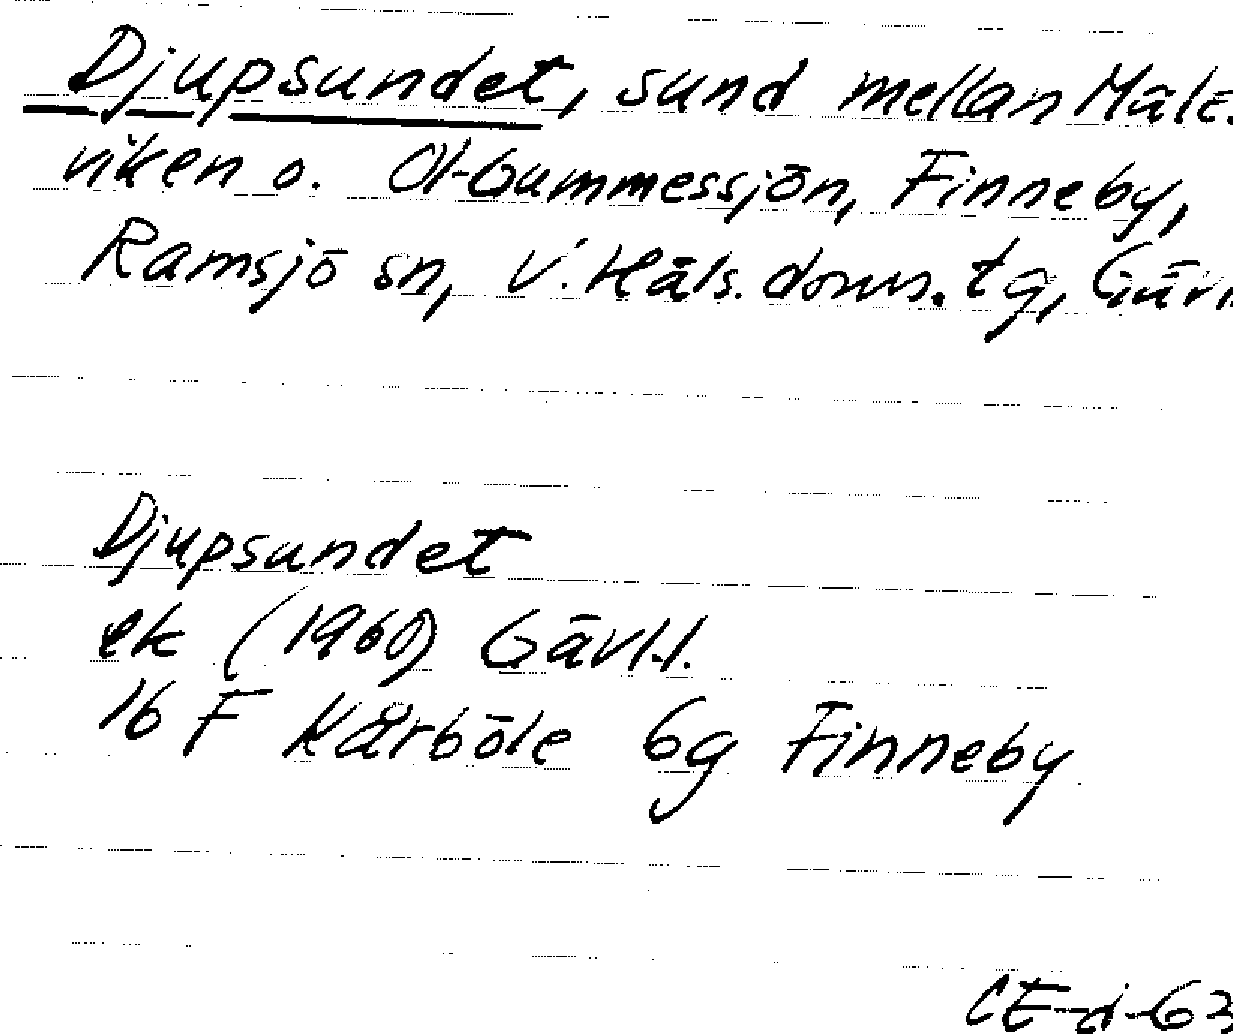 Djupsundet, sund mellan Måls-
viken o. Ol-Gummessjön, Finneby,
Ramsjö sn, V. Häls. doms. tg, Gävl.
Djupsundet
ek (1960) Gävl.l.
16 F Kårböle 6g Finneby
CE-d-63